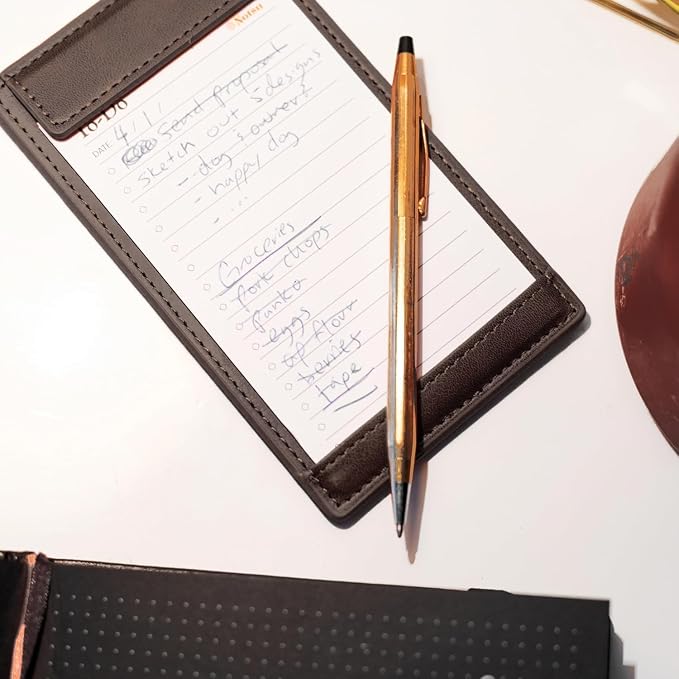 Notsu
To-Do
DATE 4/1/
Send proposal
sketch out 5 designs
- dog + owner?
- happy dog
- ...
Groceries
pork chops
panko
eggs
ap flour
berries
tape